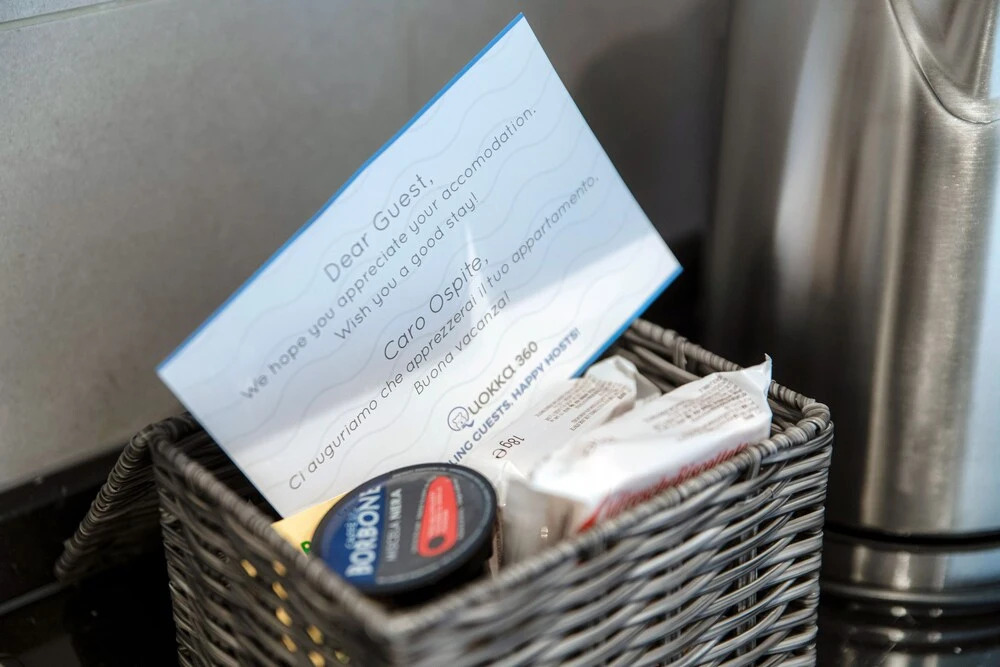 Dear Guest,
We hope you appreciate your accomodation.
Wish you a good stay!
Caro Ospite,
Ci auguriamo che apprezzerai il tuo appartamento.
Buona vacanza!
QUOKKA 360
LING GUESTS, HAPPY HOSTS!
18g e
CAFFÈ
BORBONE
MISCELA NERA